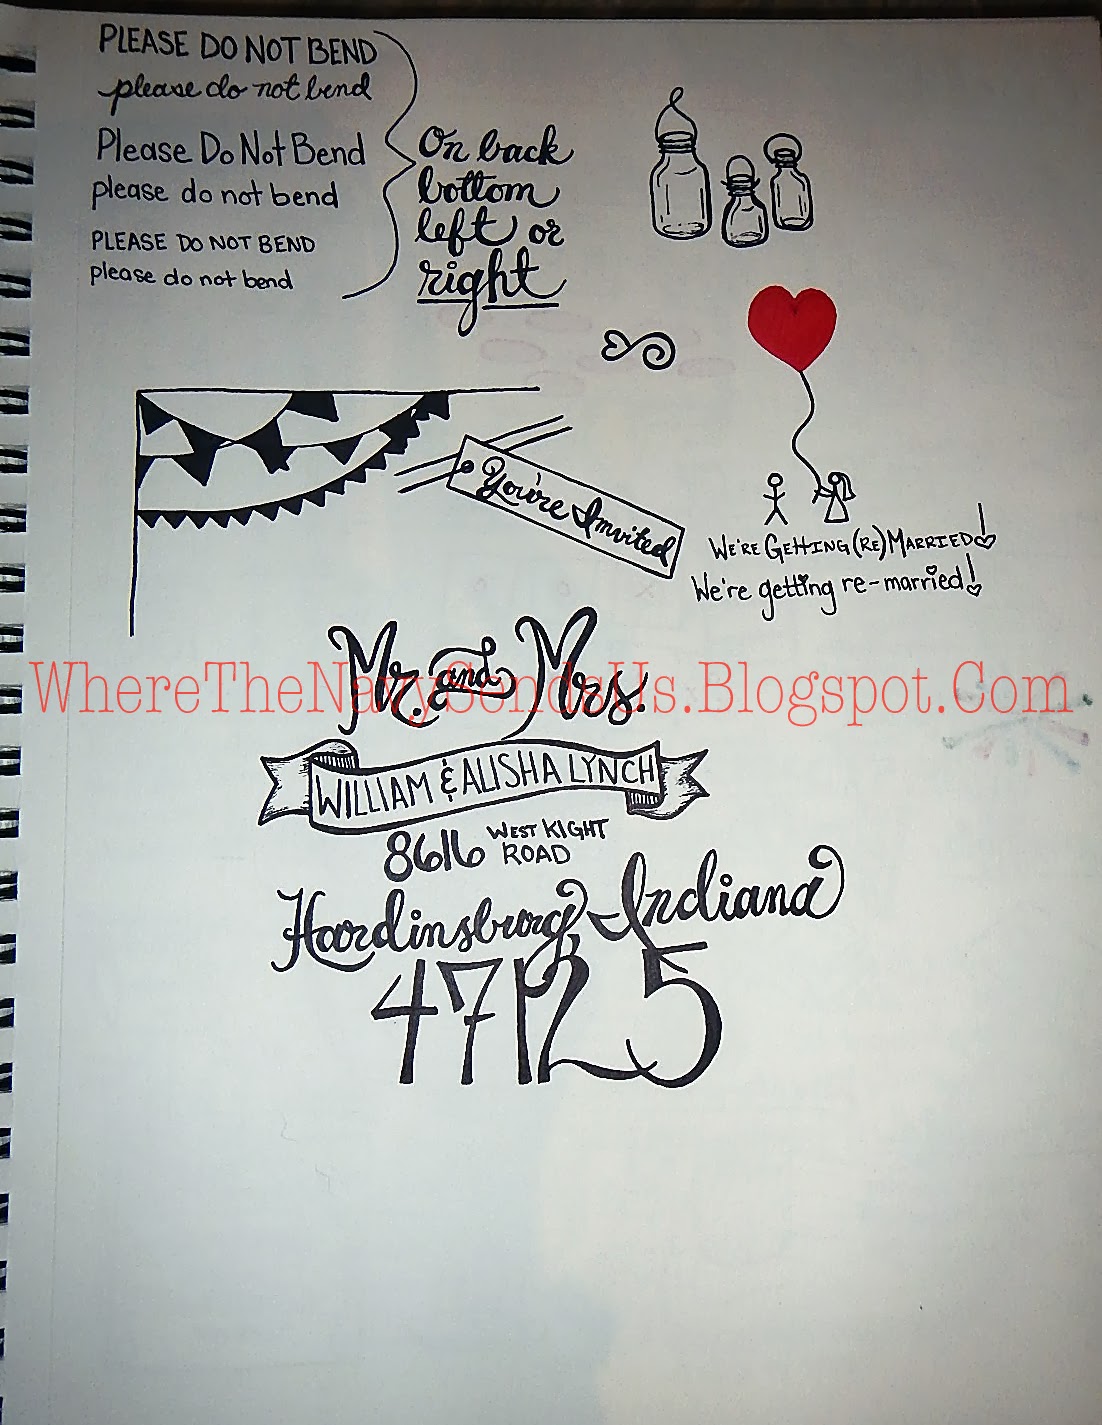 PLEASE DO NOT BEND
please do not bend
Please Do Not Bend
please do not bend
PLEASE DO NOT BEND
please do not bend
On back
bottom
left or
right
You're Invited
WE'RE GETTING (RE) MARRIED!
We're getting re-married!
Mr. and Mrs.
WhereTheNavySendsUs.Blogspot.Com
WILLIAM & ALISHA LYNCH
8616 WEST KIGHT
ROAD
Hardinsburg, Indiana
47125